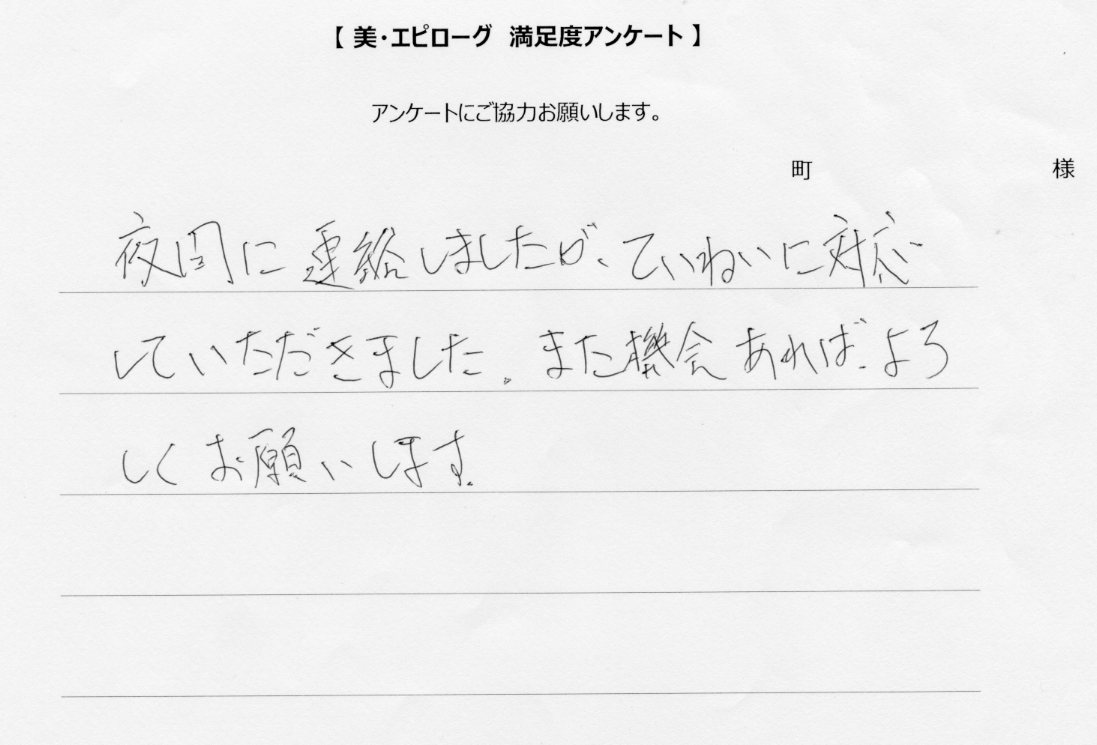 【 美・エピローグ 満足度アンケート 】
アンケートにご協力お願いします。
町 様
夜間に連絡しましたが、ていねいに対応
していただきました。また機会あれば、よろ
しくお願いします。